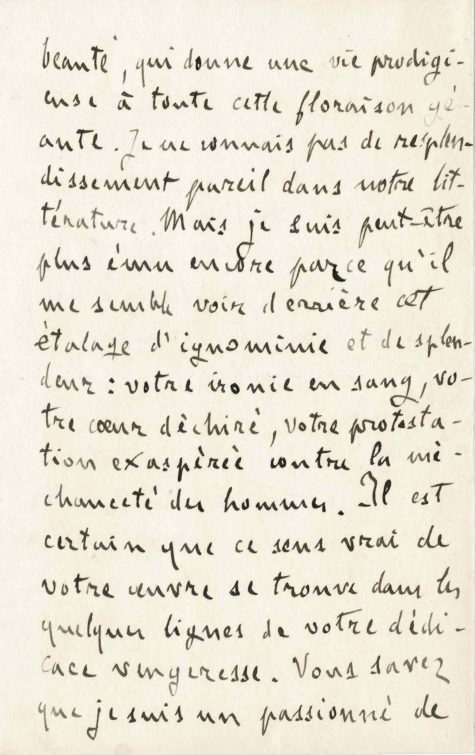 beauté, qui donne une vie prodigi-
euse à toute cette floraison gé-
ante. Je ne connais pas de resplen-
dissement pareil dans notre lit-
térature. Mais je suis peut-être
plus ému encore parce qu'il
me semble voir derrière cet
étalage d'ignominie et de splen-
deur : votre ironie en sang, vo-
tre cœur déchiré, votre protesta-
tion exaspérée contre la mé-
chanceté des hommes. Il est
certain que ce sens vrai de
votre œuvre se trouve dans les
quelques lignes de votre dédi-
cace vengeresse. Vous savez
que je suis un passionné de